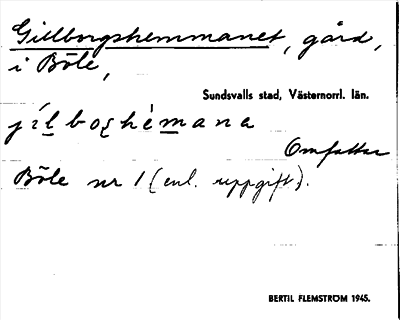 Gillborgshemmanet, gård,
i Böle,
Sundsvalls stad, Västernorrl. län.
jílboꞬhèmana
Omfattar
Böle nr 1 (enl. uppgift).
BERTIL FLEMSTRÖM 1945.